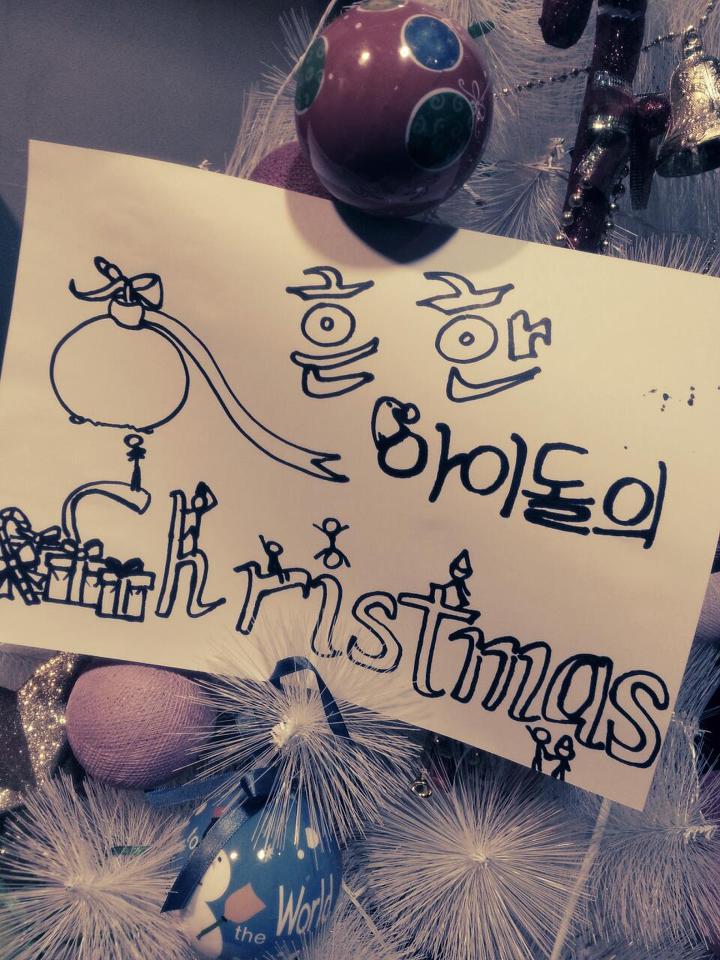 흔한
아이돌의
Christmas
the World